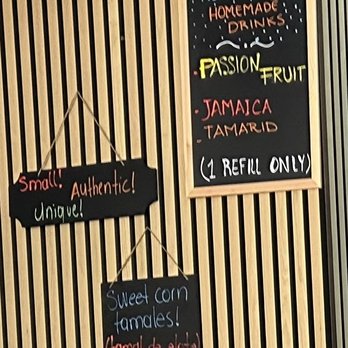 HOMEMADE
DRINKS
· PASSION FRUIT
· JAMAICA
· TAMARID
(1 REFILL ONLY)
Small! Authentic!
Unique!
Sweet corn
tamales!
(tamal de elote)